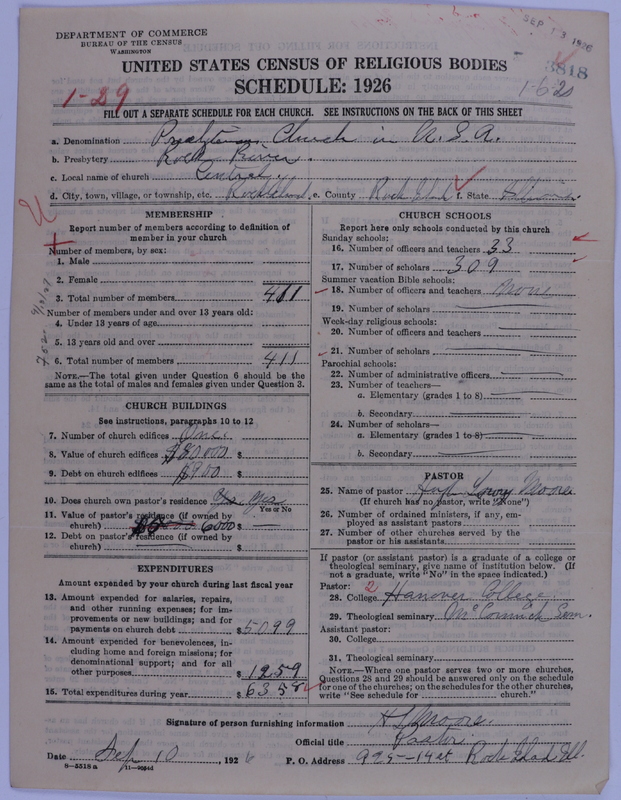 DEPARTMENT OF COMMERCE
BUREAU OF THE CENSUS
WASHINGTON
SEP 13 1926
3818
1-620
UNITED STATES CENSUS OF RELIGIOUS BODIES
SCHEDULE: 1926
1-29
FILL OUT A SEPARATE SCHEDULE FOR EACH CHURCH. SEE INSTRUCTIONS ON THE BACK OF THIS SHEET
a. Denomination Presbyterian Church in U.S.A.
b. Presbytery Rock River
c. Local name of church Central
d. City, town, village, or township, etc. Rock Island e. County Rock Island f. State Illinois
MEMBERSHIP
Report number of members according to definition of
member in your church
Number of members, by sex:
1. Male
2. Female
3. Total number of members 411
Number of members under and over 13 years old:
4. Under 13 years of age
5. 13 years old and over
6. Total number of members 411
NOTE.—The total given under Question 6 should be the
same as the total of males and females given under Question 3.
CHURCH BUILDINGS
See instructions, paragraphs 10 to 12
7. Number of church edifices One
8. Value of church edifices $80000 $
9. Debt on church edifices $ $
10. Does church own pastor's residence? Yes Yes
Yes or No
11. Value of pastor's residence (if owned by
church) 6000 $
12. Debt on pastor's residence (if owned by
church) $
EXPENDITURES
Amount expended by your church during last fiscal year
13. Amount expended for salaries, repairs,
and other running expenses; for im-
provements or new buildings; and for
payments on church debt $5099
14. Amount expended for benevolences, in-
cluding home and foreign missions; for
denominational support; and for all
other purposes $1259
15. Total expenditures during year $6358
CHURCH SCHOOLS
Report here only schools conducted by this church
Sunday schools:
16. Number of officers and teachers 33
17. Number of scholars 309
Summer vacation Bible schools:
18. Number of officers and teachers None
19. Number of scholars
Week-day religious schools:
20. Number of officers and teachers
21. Number of scholars
Parochial schools:
22. Number of administrative officers
23. Number of teachers—
a. Elementary (grades 1 to 8)
b. Secondary
24. Number of scholars—
a. Elementary (grades 1 to 8)
b. Secondary
PASTOR
25. Name of pastor Hugh Lowry Moore
(If church has no pastor, write "None")
26. Number of ordained ministers, if any, em-
ployed as assistant pastors
27. Number of other churches served by the
pastor or his assistants
If pastor (or assistant pastor) is a graduate of a college or
theological seminary, give name of institution below. (If
not a graduate, write "No" in the space indicated.)
Pastor: 2
28. College Hanover College
29. Theological seminary McCormick Sem.
Assistant pastor:
30. College
31. Theological seminary
NOTE.—Where one pastor serves two or more churches,
Questions 28 and 29 should be answered only on the schedule
for one of the churches; on the schedules for the other churches,
write "See schedule for church."
Signature of person furnishing information H L Moore
Official title Pastor
Date Sep 10, 1926 P. O. Address 925-14 st Rock Island Ill.
8-5518a